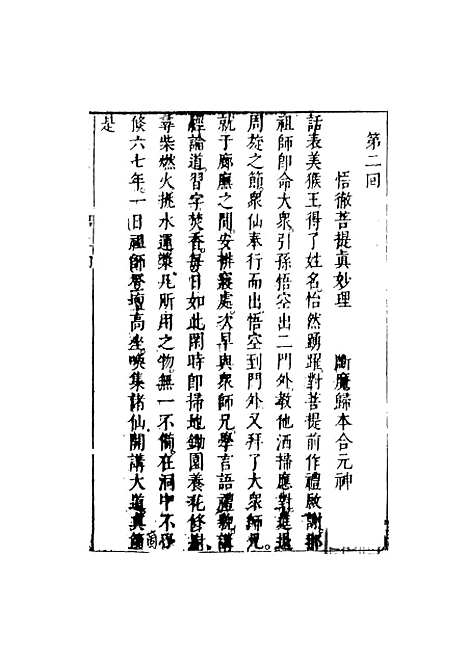 第二回
悟徹菩提真妙理 斷魔歸本合元神
話表美猴王得了姓名怡然踴躍對菩提前作禮啟謝那
祖師即命大衆引孫悟空出二門外教他洒掃應對進退
周旋之節衆仙奉行而出悟空到門外又拜了大衆師兄
就于廊廡之間安排寢處次早與衆師兄學言語禮貌講
經論道習字焚香每日如此閑時即掃地鋤園養花修樹
尋柴燃火挑水運漿凡所用之物無一不備在洞中不覺
倐六七年一日祖師登壇高坐喚集諸仙開講大道真箇
是